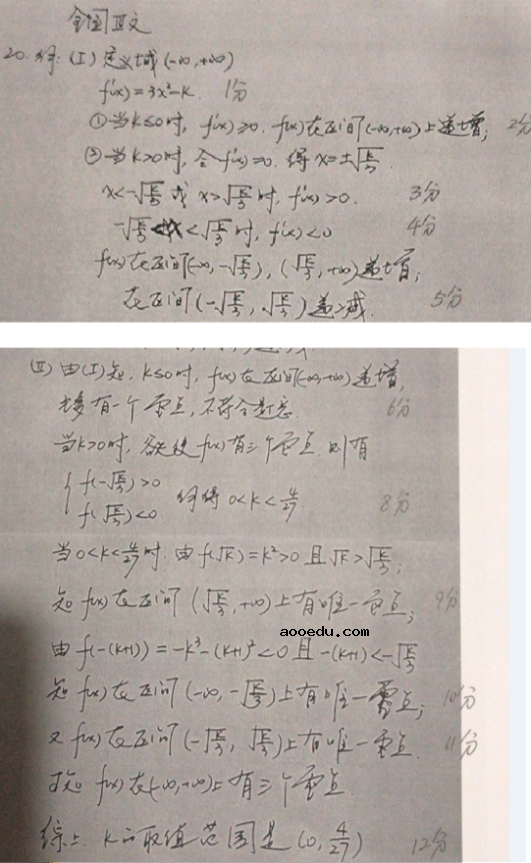 全国Ⅲ文
20. 解:(Ⅰ) 定义域(-∞,+∞)
f'(x)=3x²-k. 1分
①当k≤0时, f'(x)≥0. f(x)在区间(-∞,+∞)上递增; 2分
②当k>0时, 令f'(x)=0. 得x=±√(k/3)
x<-√(k/3) 或 x>√(k/3) 时, f'(x)>0. 3分
-√(k/3)<x<√(k/3) 时, f'(x)<0 4分
f(x)在区间(-∞,-√(k/3)), (√(k/3),+∞)递增;
在区间(-√(k/3),√(k/3))递减. 5分
(Ⅱ) 由(Ⅰ)知, k≤0时, f(x)在区间(-∞,+∞)递增,
有一个零点, 不符合题意. 6分
当k>0时, 若使f(x)有三个零点, 则有
{ f(-√(k/3))>0
f(√(k/3))<0 解得 0<k<4/27 8分
当0<k<4/27时. 由f(√k)=k²>0 且√k>√(k/3);
知f(x)在区间(√(k/3),+∞)上有唯一零点; 9分
aooedu.com
由f(-(k+1))=-k³-(k+1)²<0 且 -(k+1)<-√(k/3)
知f(x)在区间(-∞,-√(k/3))上有唯一零点; 10分
又f(x)在区间(-√(k/3),√(k/3))上有唯一零点. 11分
故知f(x)在(-∞,+∞)上有三个零点.
综上. k的取值范围是(0,4/27) 12分